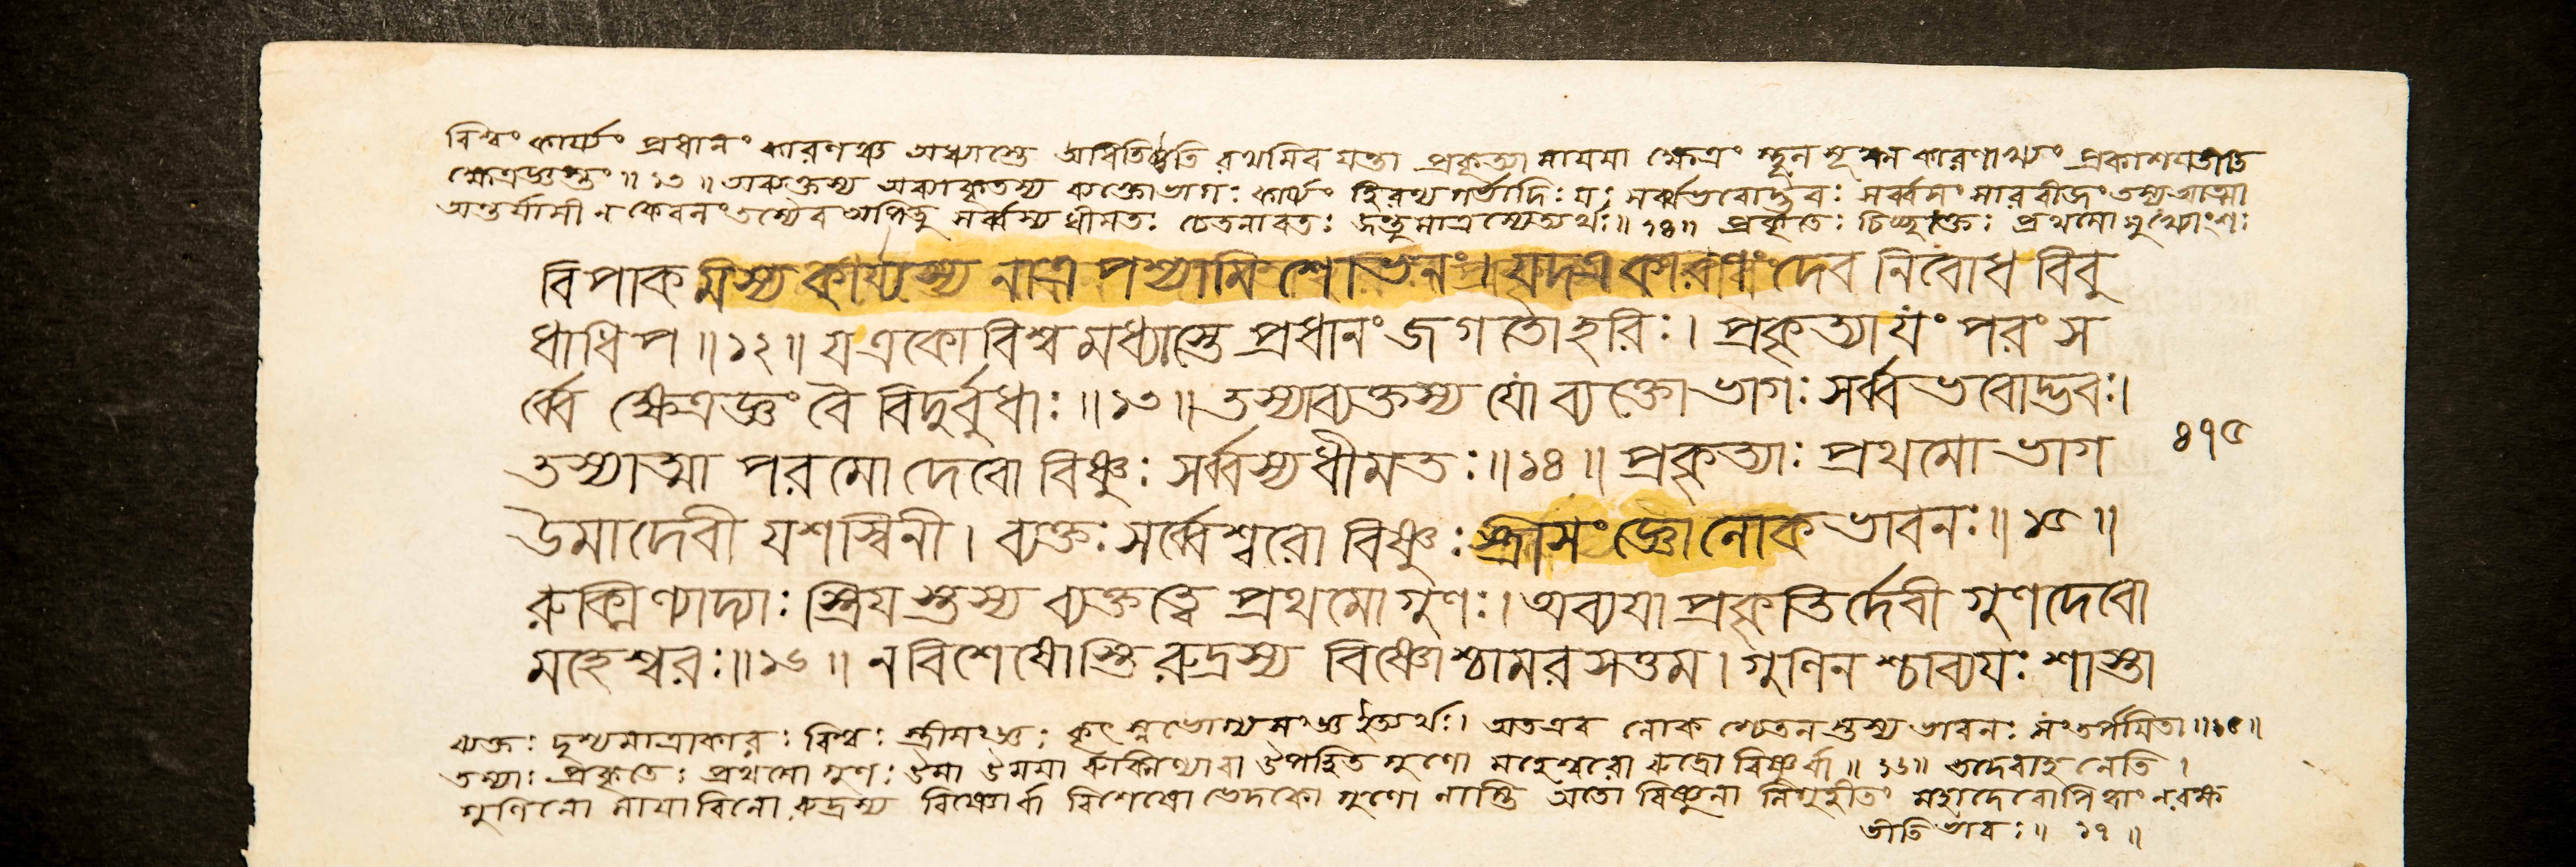 বিশ্বং কার্য্যং প্রধানং কারণঞ্চ অধ্যাস্তে অধিতিষ্ঠতি রথমিব যন্তা প্রকৃত্যা মায়য়া ক্ষেত্রং স্থূল সূক্ষ্ম কারণাখ্যং প্রকাশয়তীতি
ক্ষেত্রজ্ঞস্তং ॥ ১৩ ॥ অব্যক্তস্য অব্যাকৃতস্য ব্যক্তোভাগঃ কার্য্যং হিরণ্য গর্ভাদিঃ যঃ সর্ব্বভবোদ্ভবঃ সর্ব্বসংসারবীজং তস্য আত্মা
অন্তর্যামী ন কেবলং তস্যৈব অপিতু সর্ব্বস্য ধীমতঃ চেতনাবতঃ জন্তুমাত্রস্যেত্যর্থঃ ॥ ১৪ ॥ প্রকৃতেঃ চিচ্ছক্তেঃ প্রথমো মুখ্যোংশঃ
বিপাক মস্য কার্য্যস্য নাত্র পশ্যামি শোভনং । যদত্র কারণং দেব নিবোধ বিবু
ধাধিপ ॥ ১২ ॥ য একো বিশ্ব মধ্যাস্তে প্রধানং জগতো হরিঃ । প্রকৃত্যা যং পরং স
র্ব্বে ক্ষেত্রজ্ঞং বৈ বিদুর্বুধাঃ ॥ ১৩ ॥ তস্যাব্যক্তস্য যো ব্যক্তো ভাগঃ সর্ব্ব ভবোদ্ভবঃ ।
তস্যাত্মা পরমো দেবো বিষ্ণুঃ সর্ব্বস্য ধীমতঃ ॥ ১৪ ॥ প্রকৃত্যাঃ প্রথমো ভাগ
৪৭৫
উমাদেবী যশস্বিনী । ব্যক্তঃ সর্ব্বেশ্বরো বিষ্ণুঃ স্ত্রীসংজ্ঞো লোক ভাবনঃ ॥ ১৫ ॥
রুক্মিণ্যাদ্যাঃ স্ত্রিয স্তস্য ব্যক্তত্বে প্রথমো গুণঃ । অব্যযা প্রকৃতির্দেবী গুণদেবো
মহেশ্বরঃ ॥ ১৬ ॥ ন বিশেষোস্তি রুদ্রস্য বিষ্ণোশ্চামর সত্তম । গুণিন শ্চাব্যযঃ শাস্তা
ব্যক্তঃ দৃশ্যমাত্রাকারঃ বিশ্বঃ স্ত্রীসংজ্ঞঃ কৃৎস্নভোগ্যসংজ্ঞ ইত্যর্থঃ । অতএব লোক শ্চেতন স্তস্য ভাবনঃ সংতর্পয়িতা ॥ ১৫ ॥
তস্যাঃ প্রকৃতেঃ প্রথমো গুণঃ উমা উময়া রুক্মিণ্যাবা উপহিত গুণো মহেশ্বরো রুদ্রো বিষ্ণুর্বা ॥ ১৬ ॥ তদেবাহ নেতি ।
গুণিনো মায়াবিনো রুদ্রস্য বিষ্ণোর্বা বিশেষো ভেদকো গুণো নাস্তি অতো বিষ্ণুনা নিগৃহীতং মহাদেবোপি ত্বাং ন রক্ষ
তীতি ভাবঃ ॥ ১৭ ॥